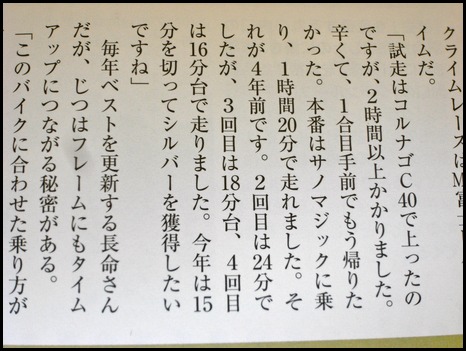 クライムレースはM富士
イムだ。
「試走はコルナゴC40で上ったの
ですが、2時間以上かかりました。
辛くて、1合目手前でもう帰りた
かった。本番はサノマジックに乗
り、1時間20分で走れました。そ
れが4年前です。2回目は24分で
したが、3回目は18分台、4回目
は16分台で走りました。今年は15
分を切ってシルバーを獲得したい
ですね」
毎年ベストを更新する長命さん
だが、じつはフレームにもタイム
アップにつながる秘密がある。
「このバイクに合わせた乗り方が